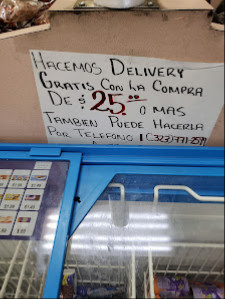 HACEMOS DELIVERY
GRATIS CON LA COMPRA
DE $25.00 O MAS
TAMBIEN PUEDE HACERLA
POR TELEFONO